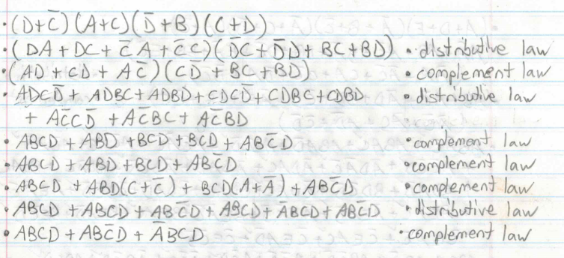 • (D+C̅)(A+C)(D̅+B)(C+D)
• (DA+DC+C̅A+C̅C)(D̅C+D̅D+BC+BD) • distributive law
• (AD+CD+AC̅)(CD̅+BC+BD) • complement law
• ADCD̅+ADBC+ADBD+CDCD̅+CDBC+CDBD • distributive law
+ AC̅CD̅+AC̅BC+AC̅BD
• ABCD+ABD+BCD+BCD+ABC̅D • complement law
• ABCD+ABD+BCD+ABC̅D • complement law
• ABCD+ABD(C+C̅)+BCD(A+A̅)+ABC̅D • complement law
• ABCD+ABCD+ABC̅D+ABCD+A̅BCD+ABC̅D • distributive law
• ABCD+ABC̅D+A̅BCD • complement law